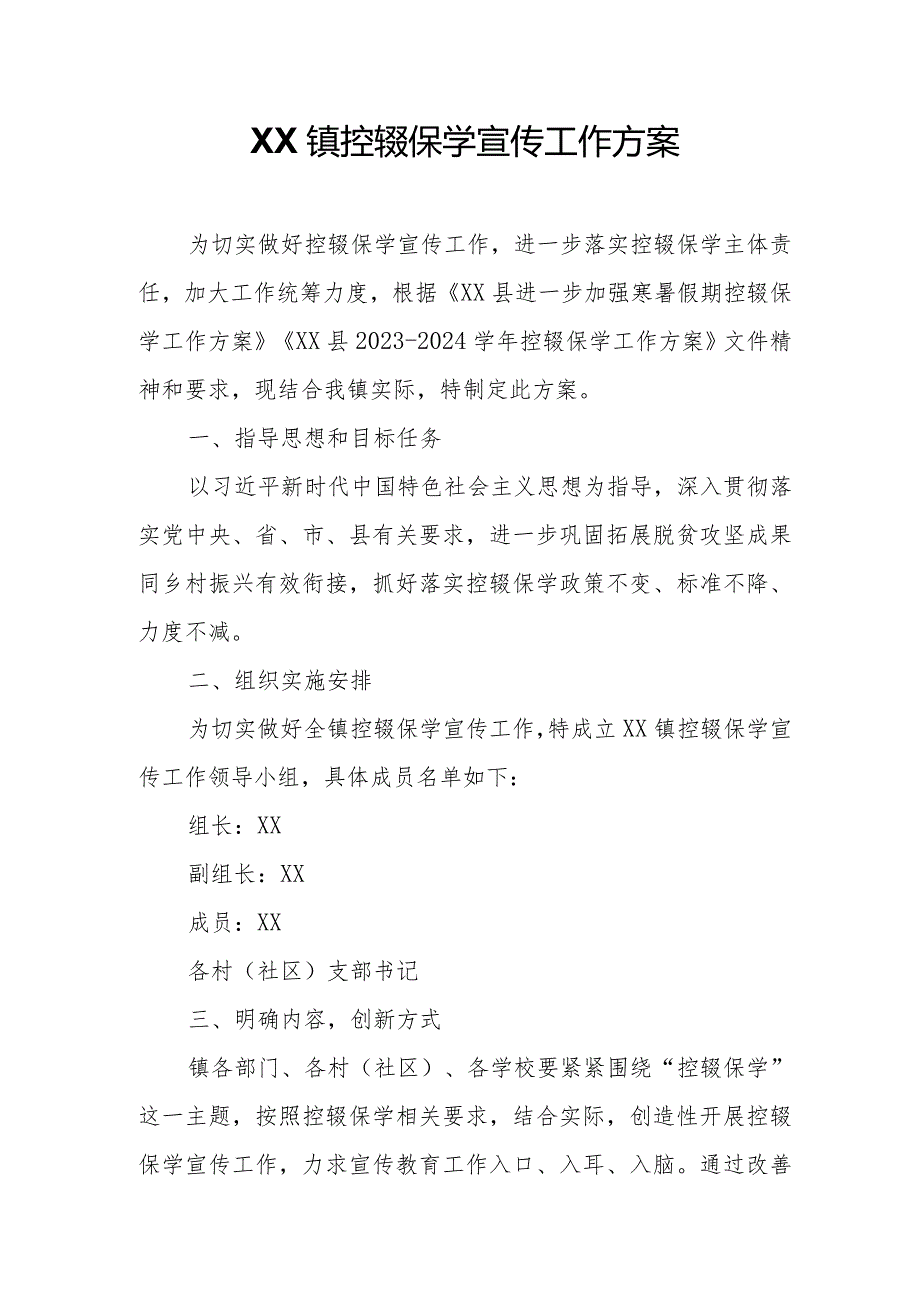 XX镇控辍保学宣传工作方案
为切实做好控辍保学宣传工作，进一步落实控辍保学主体责
任，加大工作统筹力度，根据《XX县进一步加强寒暑假期控辍保
学工作方案》《XX县2023-2024学年控辍保学工作方案》文件精
神和要求，现结合我镇实际，特制定此方案。
一、指导思想和目标任务
以习近平新时代中国特色社会主义思想为指导，深入贯彻落
实党中央、省、市、县有关要求，进一步巩固拓展脱贫攻坚成果
同乡村振兴有效衔接，抓好落实控辍保学政策不变、标准不降、
力度不减。
二、组织实施安排
为切实做好全镇控辍保学宣传工作，特成立XX镇控辍保学宣
传工作领导小组，具体成员名单如下：
组长：XX
副组长：XX
成员：XX
各村（社区）支部书记
三、明确内容，创新方式
镇各部门、各村（社区）、各学校要紧紧围绕“控辍保学”
这一主题，按照控辍保学相关要求，结合实际，创造性开展控辍
保学宣传工作，力求宣传教育工作入口、入耳、入脑。通过改善